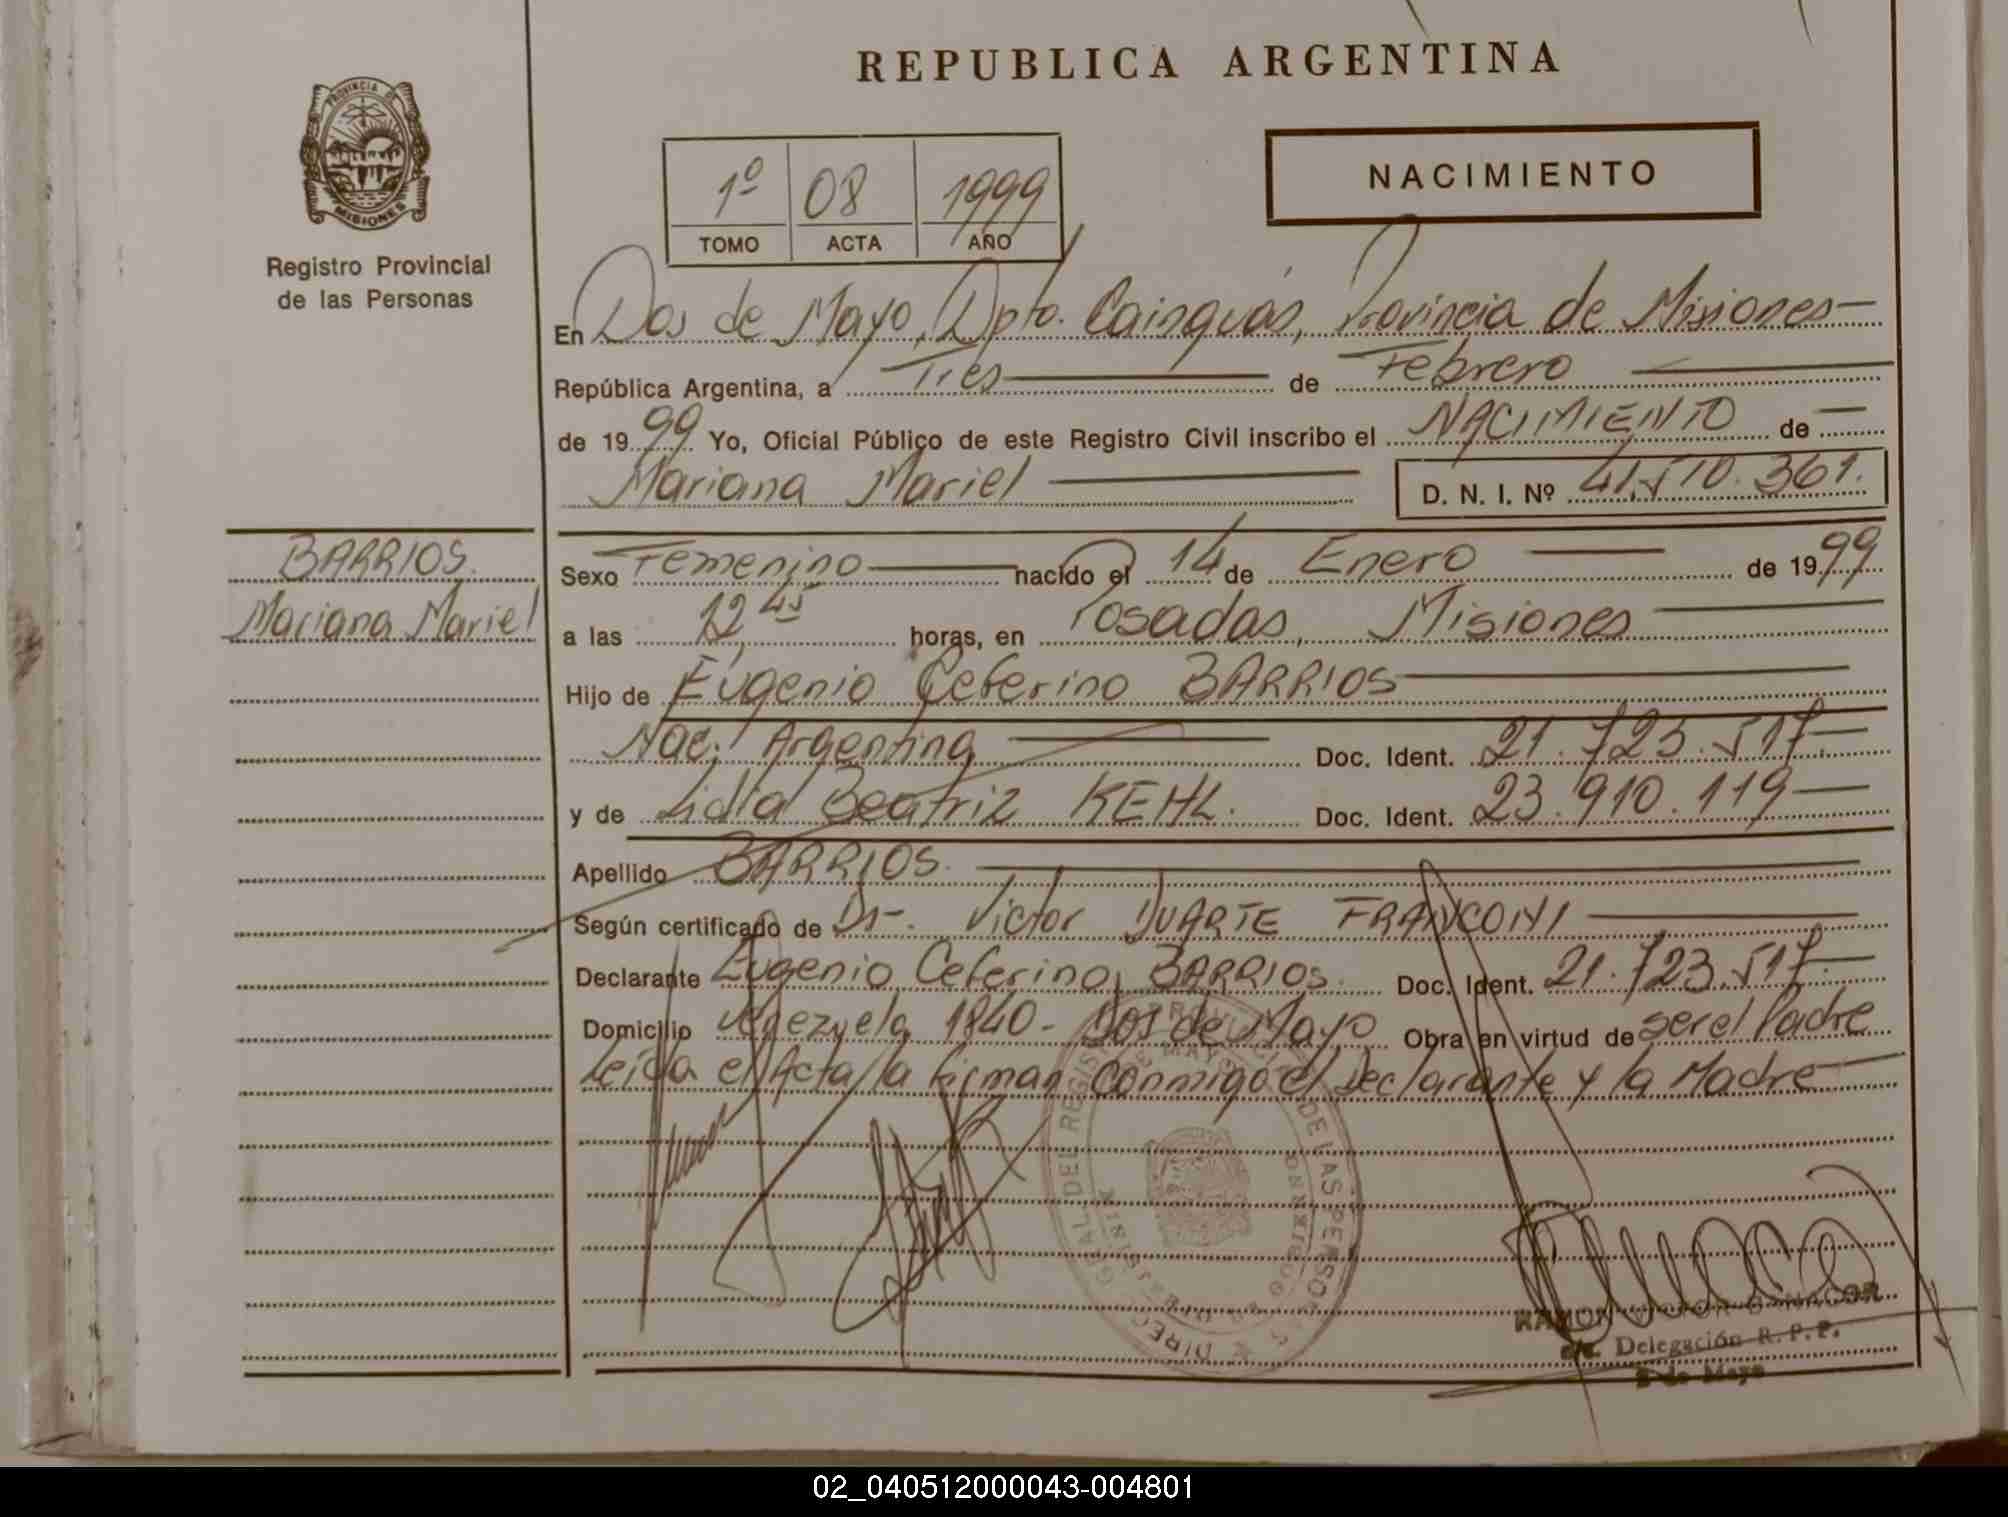 REPUBLICA ARGENTINA
PROVINCIA DE
MISIONES
Registro Provincial
de las Personas
1º 08 1999
TOMO ACTA AÑO
NACIMIENTO
En Dos de Mayo, Dpto. Cainguás, Provincia de Misiones
República Argentina, a Tres de Febrero
de 1999 Yo, Oficial Público de este Registro Civil inscribo el NACIMIENTO de
Mariana Mariel D. N. I. Nº 41.510.361.
BARRIOS.
Mariana Mariel
Sexo Femenino nacido el 14 de Enero de 1999
a las 12,45 horas, en Posadas, Misiones
Hijo de Eugenio Ceferino BARRIOS
Nac. Argentina Doc. Ident. 21.723.517
y de Lidia Beatriz KEHL. Doc. Ident. 23.910.119
Apellido BARRIOS.
Según certificado de Dr. Victor DUARTE FRANCONI
Declarante Eugenio Ceferino BARRIOS. Doc. Ident. 21.723.517
Domicilio Venezuela 1840 - Dos de Mayo Obra en virtud de ser el Padre
Leída el Acta la firman conmigo el Declarante y la Madre
RAMON
Delegación R.P.P.
2 de Mayo
02_040512000043-004801